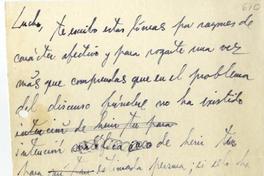 610
Lucho, te escribo estas líneas por razones de
carácter afectivo y para rogarte una vez
más que comprendas que en el problema
del discurso fúnebre no ha existido
intención de herir tu para
intención de herir tu
para tu estimada persona; si ella ha